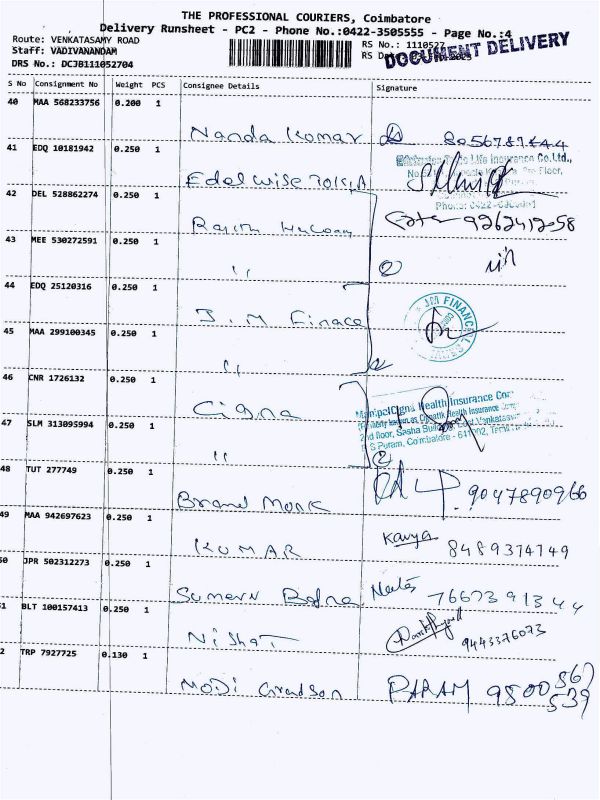 THE PROFESSIONAL COURIERS, Coimbatore
Delivery Runsheet - PC2 - Phone No.:0422-3505555 - Page No.:4
Route: VENKATASAMY ROAD RS No.: 1110527
DOCUMENT DELIVERY
Staff: VADIVANANDAM RS
DRS No.: DCJB111052704
S No Consignment No Weight PCS Consignee Details Signature
40 MAA 568233756 0.200 1
Nanda Kumar
41 EDQ 10181942 0.250 1
Life Insurance Co.Ltd.,
Floor,
Edelwise Tokia
42 DEL 528862274 0.250 1
Phone: 0422
9262412-58
43 MEE 530272591 0.250 1
"
2
44 EDQ 25120316 0.250 1
J.M Finace
JM FINANCIAL
45 MAA 299100345 0.250 1
"
2
46 CNR 1726132 0.250 1
Cigna
ManipalCigna Health Insurance
(Formerly known as Cignattk Health Insurance
2nd floor, Sasha Building, East Venkatasamy
R S Puram, Coimbatore - 641002,
47 SLM 313095994 0.250 1
"
2
48 TUT 277749 0.250 1
Brand Monk 9047890966
49 MAA 942697623 0.250 1
KUMAR Kavya 8489374749
50 JPR 502312273 0.250 1
Bafna 7667391344
51 BLT 100157413 0.250 1
Nishat 9443376073
52 TRP 7927725 0.130 1
MODi PARAM 9800
567
539